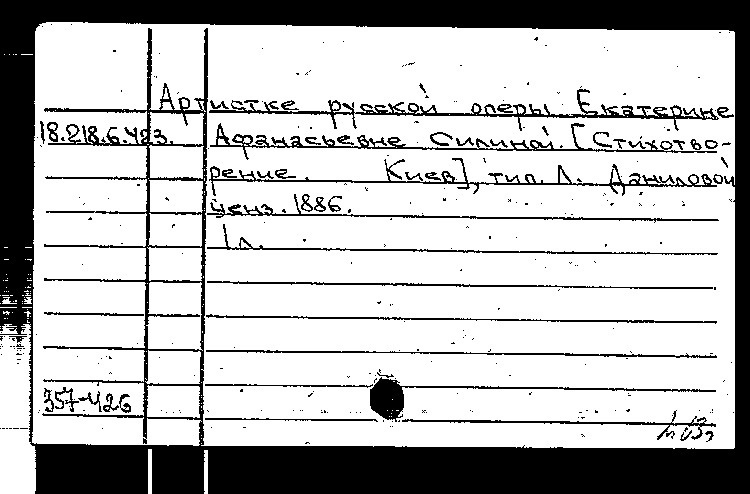 Артистке русской оперы Екатерине
18.218.6.423. Афанасьевне Силиной. [Стихотво-
рение. Киев], тип. Л. Даниловой
ценз. 1886.
1 л.
357-426